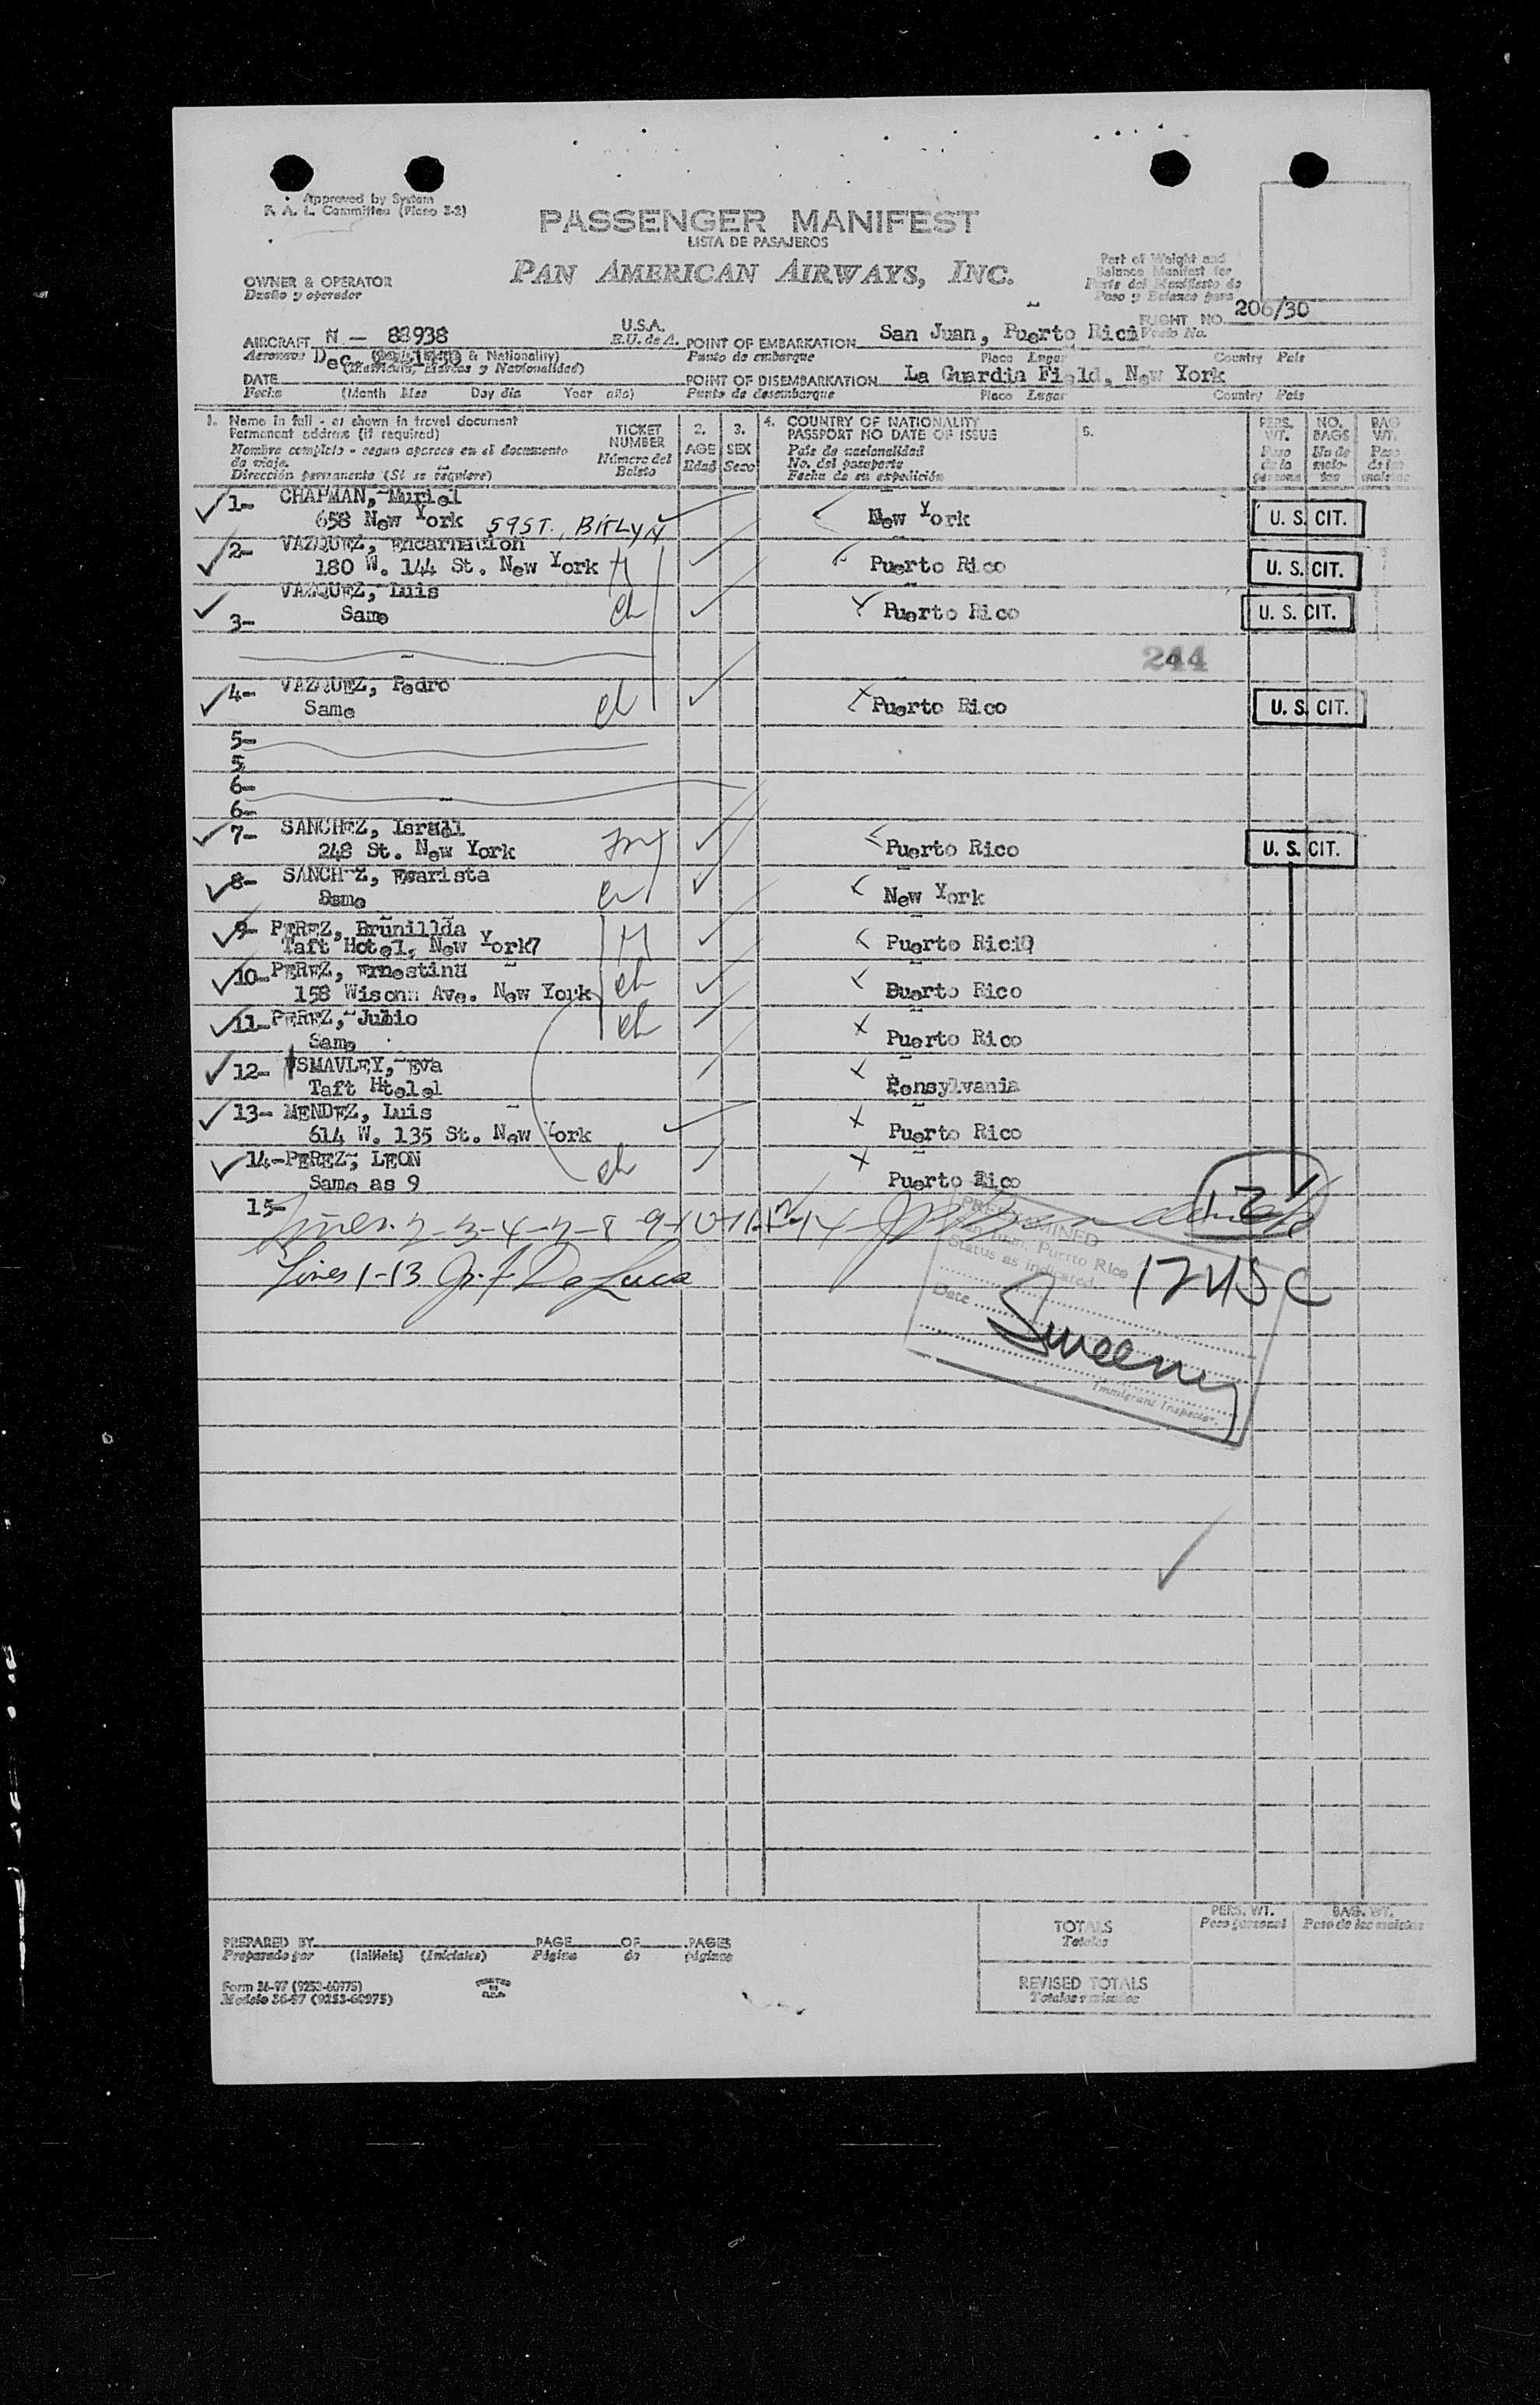 Approved by System
F. A. L. Committee (Piece 3-2)
PASSENGER MANIFEST
LISTA DE PASAJEROS
PAN AMERICAN AIRWAYS, INC.
Part of Weight and
Balance Manifest for
Parte del Manifiesto de
Peso y Balance para
OWNER & OPERATOR
Dueño y operador
FLIGHT NO. 206/30
Vuelo No.
AIRCRAFT N - 88938 U.S.A.
E.U. de A.
Aeronave Dec. & Nationality)
(Matrícula, Marcas y Nacionalidad)
POINT OF EMBARKATION San Juan, Puerto Rico
Punto de embarque Place Lugar Country País
DATE
Fecha (Month Mes Day día Year año)
POINT OF DISEMBARKATION La Guardia Field, New York
Punto de desembarque Place Lugar Country País
1. Name in full - as shown in travel document
Permanent address (if required)
Nombre completo - segun aparece en el documento
de viaje.
Dirección permanente (Si se requiere)
TICKET
NUMBER
Número del
Boleto
2.
AGE
Edad
3.
SEX
Sexo
4. COUNTRY OF NATIONALITY
PASSPORT NO DATE OF ISSUE
País de nacionalidad
No. del pasaporte
Fecha de su expedición
5.
PERS.
WT.
Peso
de la
persona
NO.
BAGS
No de
male-
tas
BAG
WT.
Peso
de las
maletas
1- CHAPMAN, Muriel
658 New York 59 ST., BKLYN New York U. S. CIT.
2- VAZQUEZ, Encarnacion
180 W. 144 St. New York H Puerto Rico U. S. CIT.
VAZQUEZ, Luis
3- Same ch Puerto Rico U. S. CIT.
244
4- VAZQUEZ, Pedro
Same ch Puerto Rico U. S. CIT.
5-
5
6-
6-
7- SANCHEZ, Israel
248 St. New York Puerto Rico U. S. CIT.
8- SANCHEZ, Evarista
Same New York
9- PEREZ, Brunillda
Taft Hotel, New York7 H Puerto Rico
10- PEREZ, Ernestina
158 Wisonn Ave. New York ch Puerto Rico
11- PEREZ, Julio
Same ch Puerto Rico
12- SMAVLEY, Eva
Taft Htelel Pensylvania
13- MENDEZ, Luis
614 W. 135 St. New York Puerto Rico
14- PEREZ, LEON
Same as 9 ch Puerto Rico
15-
Lines 2-3-4-7-8-9-10-11-12-14
12
Lines 1-13 G. F. De Luca
PREEXAMINED
San Juan, Puerto Rico
Status as indicated.
12 USC
Date
Sweeny
Immigrant Inspector.
PREPARED BY PAGE OF PAGES
Preparado por (Initials) (Iniciales) Página de páginas
Form 36-97 (9253-60975)
Modelo 36-97 (9253-60975)
PRINTED
IN
U.S.A.
PERS. WT.
Peso personal
BAG. WT.
Peso de las maletas
TOTALS
Totales
REVISED TOTALS
Totales revisados